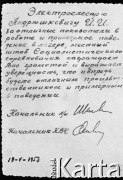 Электрослесарю
Андрюшкевичу И. И.
За отличные показатели в
работе и примерное пове-
дение в лагере, местный
штаб Социалистического
соревнования награждает
Вас грамотой и выражает
уверенность, что и впредь
будете отличным произво-
дственником и примерным
в поведении.
Начальник
Начальник КВЧ
KARTA